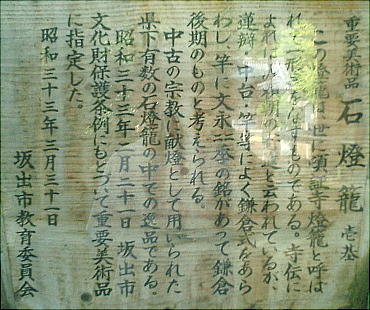 重要美術品 石燈籠 壱基
この燈籠は、世に頌証寺燈籠と呼ば
れ一形 をなすものである。寺伝に
よれば 期の と云われているが、
蓮辧、中台・竿等によく鎌倉式をあら
わし、竿に文永 の銘があって鎌倉
後期のものと考えられる。
中古の宗教に献燈として用いられた
県下有数の石燈籠の中での逸品である。
昭和三十三年二月二十一日 坂出市
文化財保護条例にもとづいて重要美術品
に指定した。
昭和三十三年三月三十一日
坂出市教育委員会